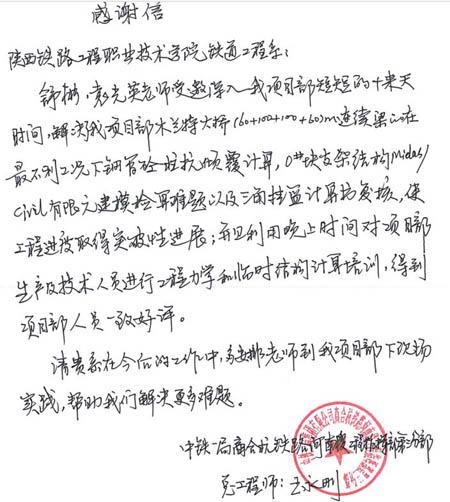 感谢信
陕西铁路工程职业技术学院铁道工程系:
舒彬, 袁光英老师受邀深入我项目部短短的十来天
时间, 解决我项目部木兰特大桥(60+100+100+60)m连续梁在
最不利工况下钢管砼柱抗倾覆计算, 0#块支架结构Midas/
Civil有限元建模检算难题以及三角挂篮计算与复核, 使
工程进度取得突破性进展; 并且利用晚上时间对项目部
生产及技术人员进行工程力学和临时结构计算培训, 得到
项目部人员一致好评。
请贵系在今后的工作中, 多安排老师到我项目部下现场
实践, 帮助我们解决更多难题。
中铁一局商合杭铁路河南段工程指挥部第分部
总工程师: